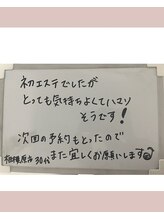 初エステでしたが
とっても気持ちよくてハマリ
そうです!
次回の予約もとったので
また宜しくお願いします
相模原市 30代